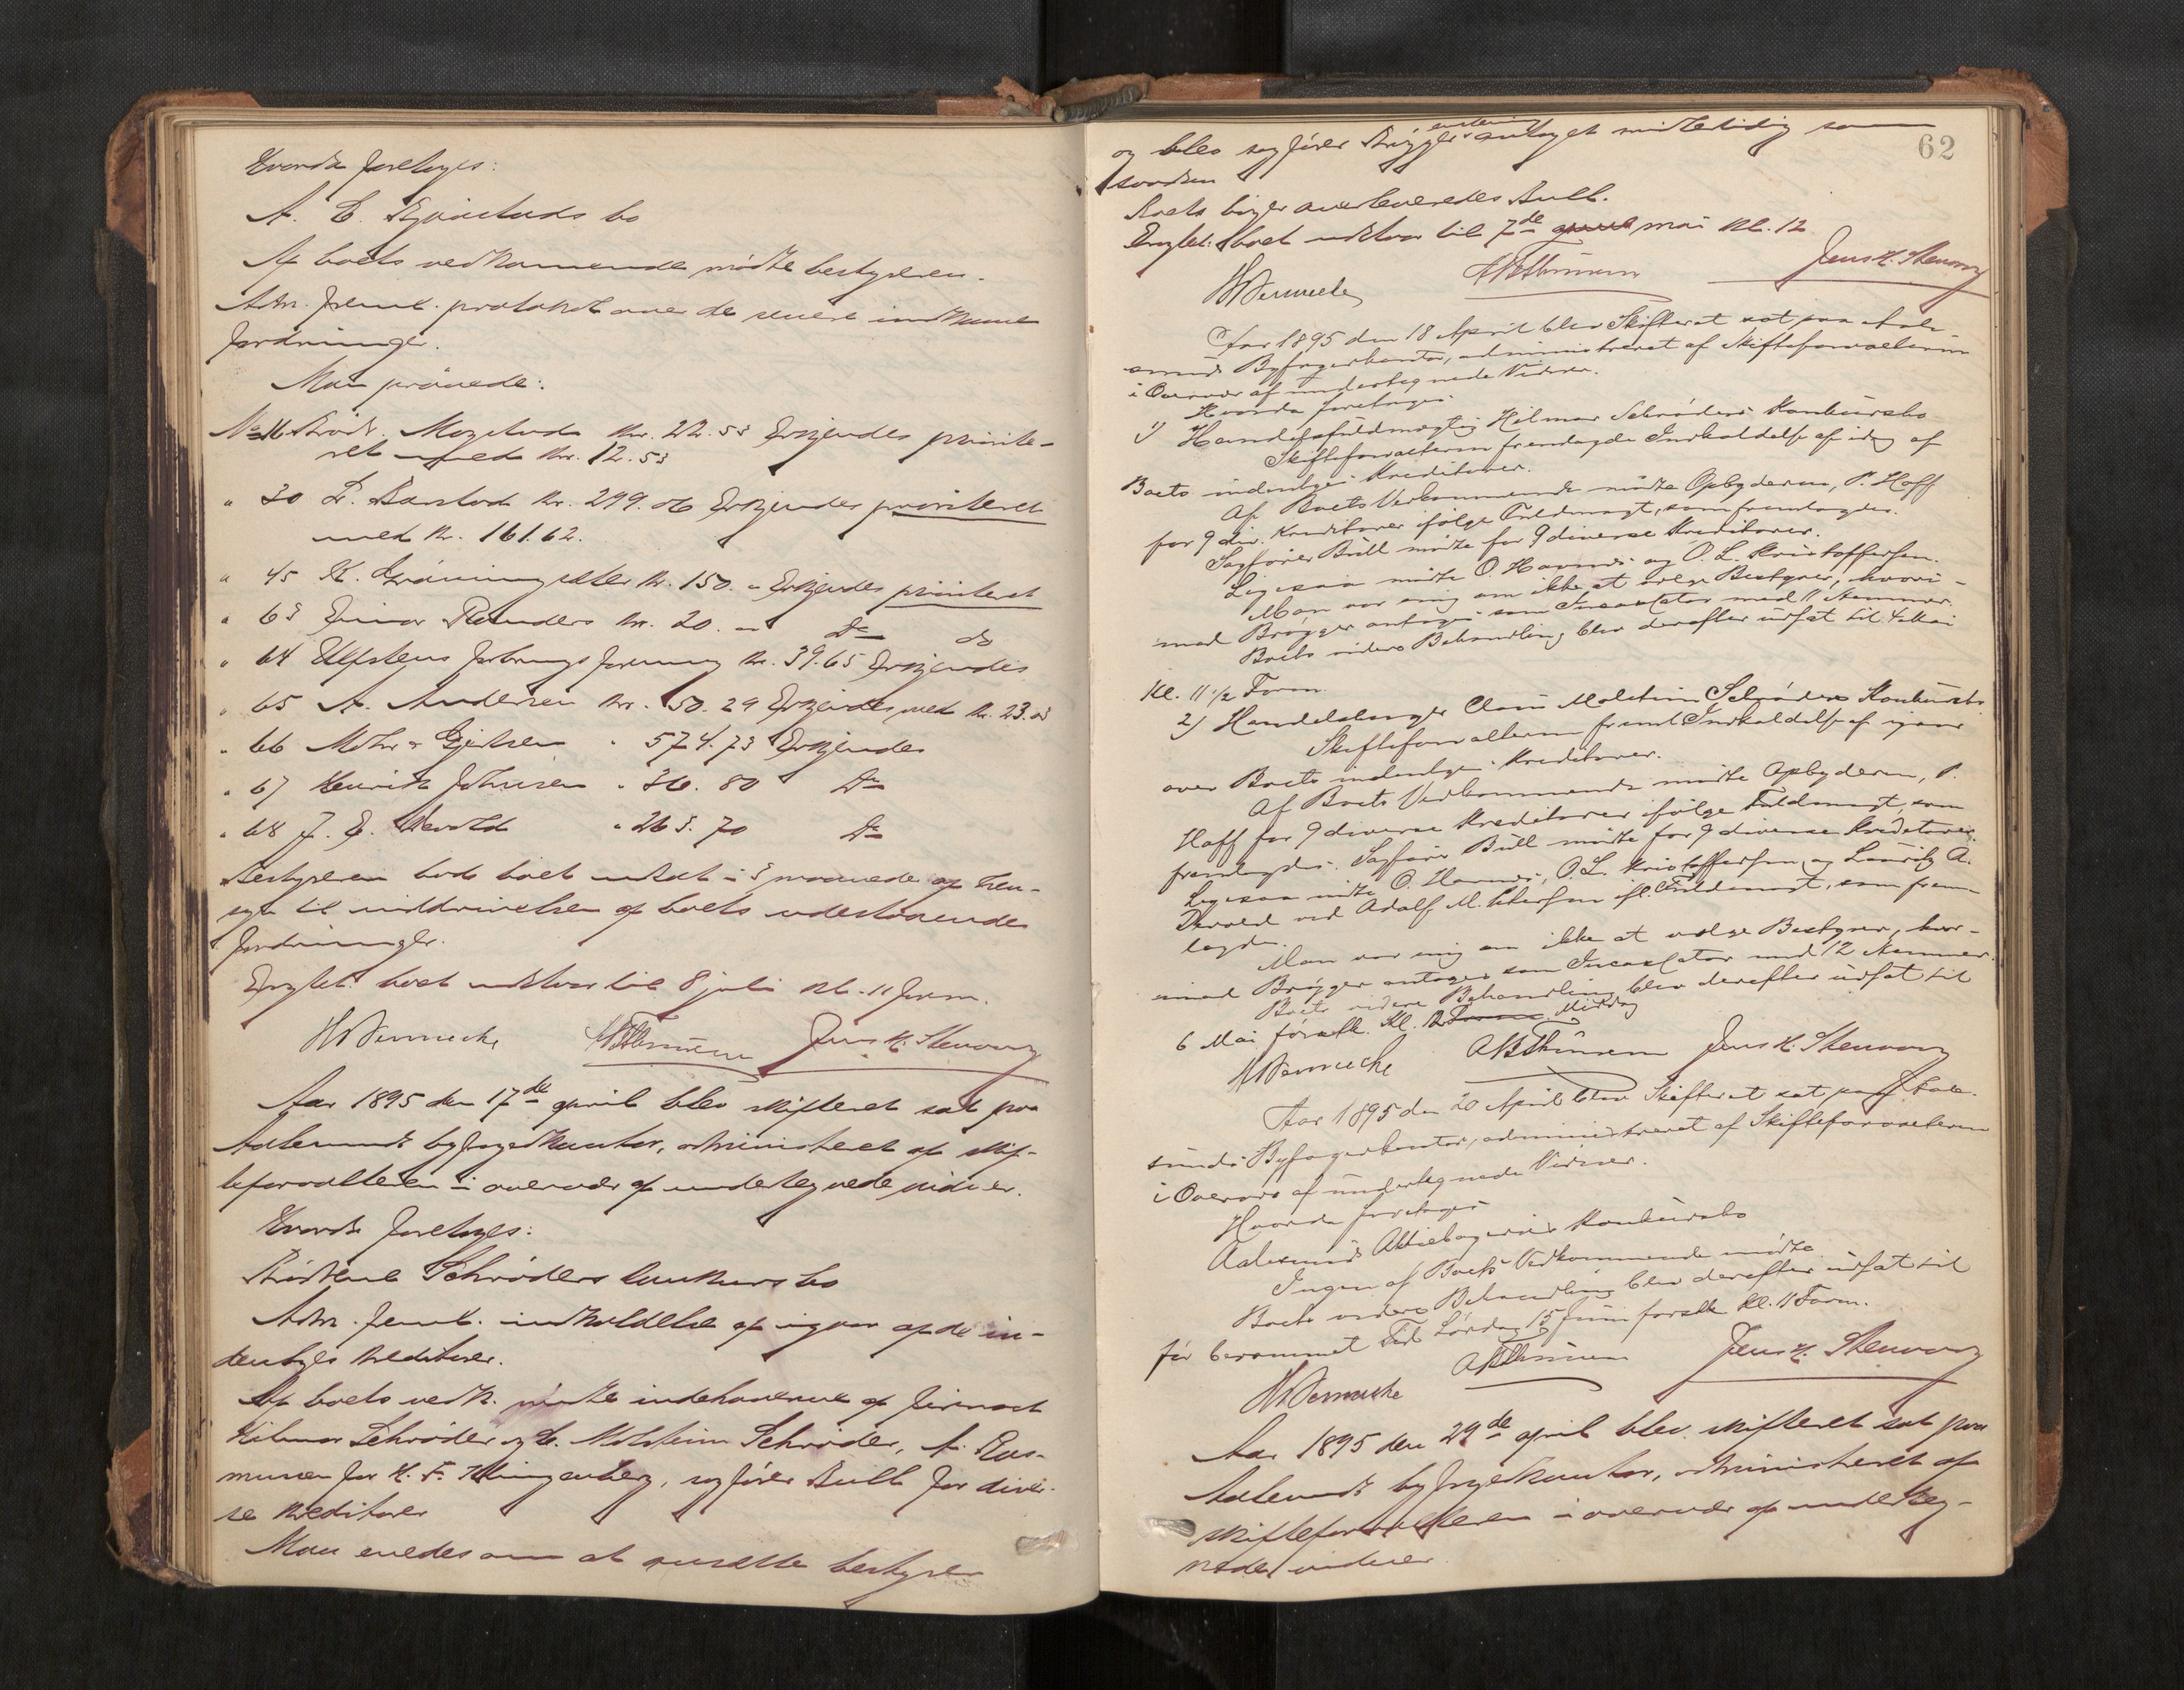 Hvorda foretoges:
A. E. bo
Af boets vedkommende mødte bestyreren.
Adm. freml. protokol over de senere indkomne
fordringer.
Man prøvede:
No 16 Kr. 22.53 Erkjendes priorite-
ret med Kr. 12.53
" 30 Kr. 299.06 Erkjendes prioriteret
med Kr. 161.62.
" 45 K. Kr. 150. " Erkjendes prioriteret
" 63 Einar Kr. 20. " Do do
" 64 forening Kr. 39.65 Erkjendes
" 65 A. Andersen Kr. 50.29 Erkjendes med Kr. 23.
" 66 Mohr & Gjertsen " 574.73 Erkjendes
" 67 Henrik Johnsen " 36.80 Do
" 68 J. E. Devold " 263.70 Do
Bestyreren bad boet udsat i 3 maaneder af hen-
syn til inddrivelsen af boets udestaaende
fordringer.
boet udstaar til 8 juli kl. 11 form.
Jens K. Stenvaag
Aar 1895 den 17de april blev skifteret sat paa
Aalesunds byfogedkontor, administreret af skif-
teforvalteren i overvær af undertegnede vidner.
Hvorda foretoges:
Schrøders konkursbo
Adm. freml. indkaldelse af igaar af de in-
denbyes kreditorer.
Af boets vedk. mødte indehaverne af firmaet
Hilmar Schrøder og C. Molstein Schrøder, A. Ras-
mussen for K. F. Klingenberg, sagfører Bull for diver-
se kreditorer
Man enedes om at ansætte bestyrer
62
og blev sagfører Brøgger antaget midletidig som
saadan
Boets bøger overleveredes Bull.
boet udstaar til 7de april mai kl. 12
Jens K. Stenvaag
Aar 1895 den 18 April blev Skifteret sat paa Aale-
sunds Byfogedkontor, administreret af Skifteforvalteren
i Overvær af undertegnede Vidner.
Hvorda foretoges
1) Handelsfuldmægtig Hilmar Schrøders Konkursbo
Skifteforvalteren fremlagde Indkaldelse af idag af
Boets indenbyes Kreditorer.
Af Boets Vedkommende mødte Opbyderen, P. Hoff
for 9 div. Kreditorer ifølge Fuldmagt, som fremlagdes.
Sagfører Bull mødte for 9 diverse Kreditorer.
Ligesaa mødte O. Havnes og O. L. Kristoffersen.
Man var enig om ikke at vælge Bestyrer, hvori-
mod Brøgger antoges som Incassator med 11 Stemmer.
Boets videre Behandling blev derefter udsat til 4 Mai
Kl. 11 1/2 Form.
2) Handelsborger Claus Molstein Schrøders Konkursbo
Skifteforvalteren freml. Indkaldelse af igaar
over Boets indenbyes Kreditorer.
Af Boets Vedkommende mødte Opbyderen, P.
Hoff for 9 diverse Kreditorer ifølge Fuldmagt, som
fremlagdes. Sagfører Bull mødte for 9 diverse Kreditorer.
Ligesaa mødte O. Havnes, O. L. Kristoffersen og Lauritz A.
Devold ved Adolf M. ifl. Fuldmagt, som frem-
lagdes.
Man var enig om ikke at vælge Bestyrer, hvor-
imod Brøgger antages som Incassator med 12 Stemmer.
Boets videre Behandling blev derefter udsat til
6 Mai førstk. Kl. 12 Form. Middag
Jens K. Stenvaag
Aar 1895 den 20 April blev Skifteret sat paa Aale-
sunds Byfogedkontor, administreret af Skifteforvalteren
i Overvær af undertegnede Vidner.
Hvorda foretoges
Aalesunds Aktiebageries Konkursbo
Ingen af Boets Vedkommende mødte.
Boets videre Behandling blev derefter udsat til
før berammet Tid Lørdag 15 Juni førstk Kl. 11 Form.
Jens K. Stenvaag
Aar 1895 den 29de april blev skifteret sat paa
Aalesunds byfogedkontor, administreret af
skifteforvalteren i overvær af underteg-
nede vidner